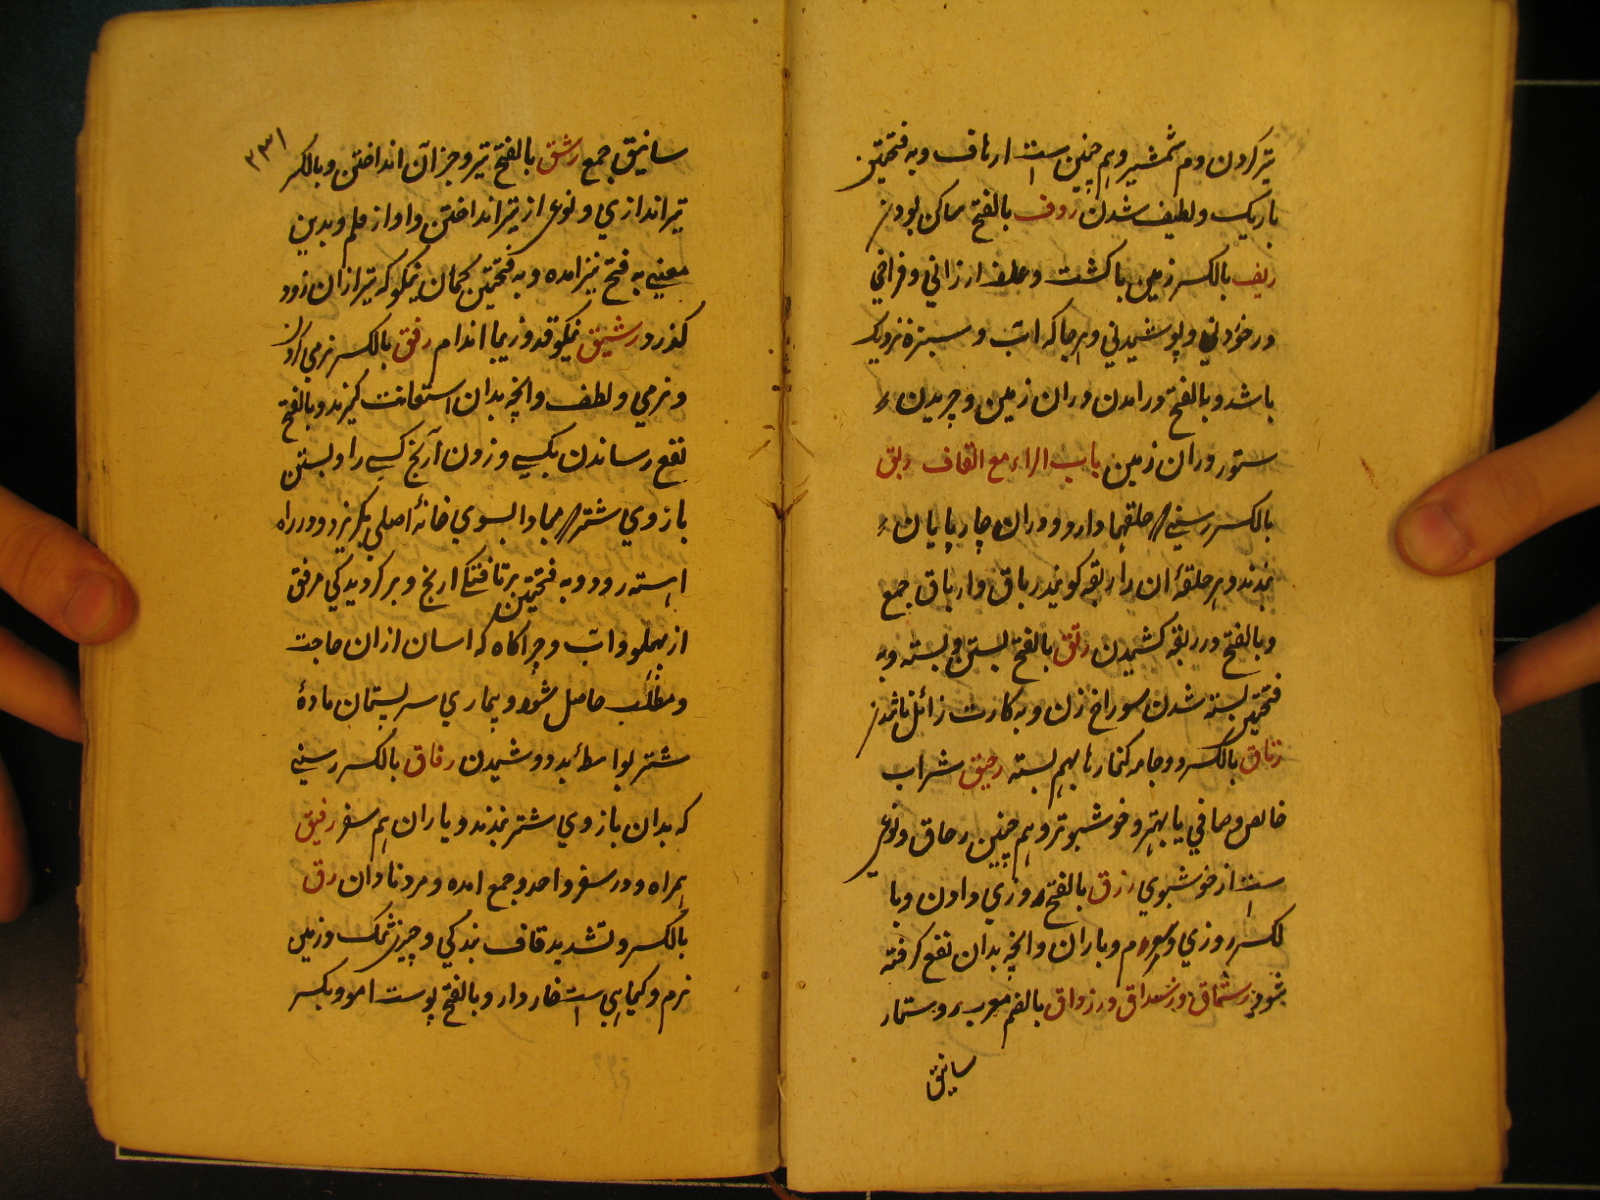 تیز کردن دم شمشیر و هم چنین ست ارهاف و به فتحتین
باریک و لطیف شدن روف بالفتح ساکن بودن
ریف بالکسر زمین با کشت و علف ارزانی و فراخی
در خوردنی و پوشیدنی و هر جا که اب و سبزه نزدیک
باشد و بالفتح درامدن دران زمین و چریدن
ستور دران زمین باب الراء مع القاف ربق
بالکسر رسنی حلقها دارد و دران چارپایان
بندند و هر حلقهٔ ان را ربقه کویند رباق و ارباق جمع
و بالفتح در ربقه کشیدن رتق بالفتح بستن و بسته و به
فتحتین بسته شدن سوراخ زن و به کارت زائل ناشدن
رتاق بالکسر دو جامه کنارها بهم بسته رحیق شراب
خالص و صافی یا بهتر و خوشبوتر و هم چنین رحاق و نوعی
ست از خوشبوی رزق بالفتح روزی دادن و با
لکسر روزی و باران و انچه بدان نفع کرفته
شود رستاق و رزداق بالضم معرب روستا ر
ساتیق
۲۳۱
ساتیق جمع رشق بالفتح تیر و جز آن انداختن و بالکسر
تیراندازی و نوعی از تیر انداختن و اواز قلم و بدین
معنی به فتح نیز امده و به فتحتین کمان نیکو که تیر ازان زود
کذرد رشیق نیکو قد و زیبا اندام رفق بالکسر نرمی کردن
و نرمی و لطف و انچه بدان استعانت کیرند و بالفتح
نفع رساندن بکسی و زدن آرنج کسی را و بستن
بازوی شتر مبادا بسوی خانهٔ اصلی بکریزد و در راه
اهسته رود و به فتحتین برتافتکی ارنج و برکردیدکی مرفق
از پهلو و اب و چراکاه که اسان ازان حاجت
و مطلب حاصل شود و بیماری سر پستان مادهٔ
شتر بواسطهٔ بد دوشیدن رفاق بالکسر رسنی
که بدان بازوی شتر بندند و یاران هم سفر رفیق
همراه و در سفر واحد و جمع امده و مرد نادان رق
بالکسر و تشدید قاف بندکی و چیز تنک و زمین
نرم و کیاهی ست خاردار و بالفتح پوست اهو و بکسر